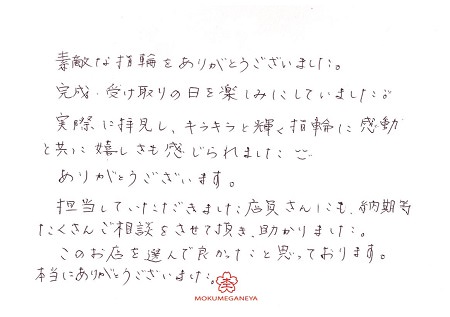 素敵な指輪をありがとうございました。
完成・受け取りの日を楽しみにしていました。
実際に拝見し、キラキラと輝く指輪に感動
と共に嬉しさも感じられました
ありがとうございます。
担当していただきました店員さんにも、納期等
たくさんご相談をさせて頂き、助かりました。
このお店を選んで良かったこと思っております。
本当にありがとうございました。
MOKUMEGANEYA